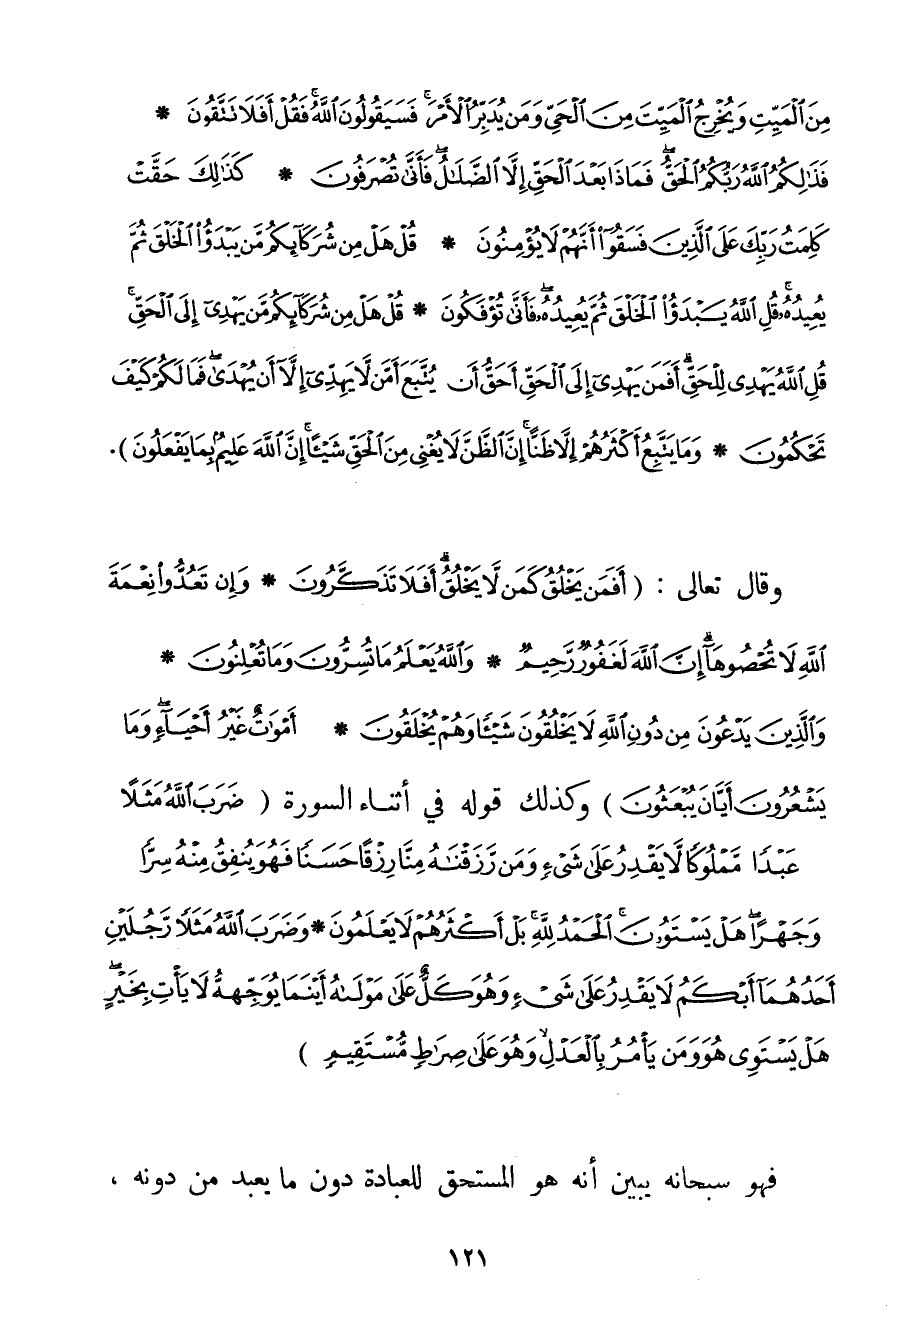 مِنَ ٱلْمَيِّتِ وَيُخْرِجُ ٱلْمَيِّتَ مِنَ ٱلْحَىِّ وَمَن يُدَبِّرُ ٱلْأَمْرَ ۚ فَسَيَقُولُونَ ٱللَّهُ ۚ فَقُلْ أَفَلَا تَتَّقُونَ *
فَذَٰلِكُمُ ٱللَّهُ رَبُّكُمُ ٱلْحَقُّ ۖ فَمَاذَا بَعْدَ ٱلْحَقِّ إِلَّا ٱلضَّلَـٰلُ ۖ فَأَنَّىٰ تُصْرَفُونَ * كَذَٰلِكَ حَقَّتْ
كَلِمَتُ رَبِّكَ عَلَى ٱلَّذِينَ فَسَقُوٓا۟ أَنَّهُمْ لَا يُؤْمِنُونَ * قُلْ هَلْ مِن شُرَكَآئِكُم مَّن يَبْدَؤُا۟ ٱلْخَلْقَ ثُمَّ
يُعِيدُهُۥ ۚ قُلِ ٱللَّهُ يَبْدَؤُا۟ ٱلْخَلْقَ ثُمَّ يُعِيدُهُۥ ۖ فَأَنَّىٰ تُؤْفَكُونَ * قُلْ هَلْ مِن شُرَكَآئِكُم مَّن يَهْدِىٓ إِلَى ٱلْحَقِّ ۚ
قُلِ ٱللَّهُ يَهْدِى لِلْحَقِّ ۗ أَفَمَن يَهْدِىٓ إِلَى ٱلْحَقِّ أَحَقُّ أَن يُتَّبَعَ أَمَّن لَّا يَهِدِّىٓ إِلَّآ أَن يُهْدَىٰ ۖ فَمَا لَكُمْ كَيْفَ
تَحْكُمُونَ * وَمَا يَتَّبِعُ أَكْثَرُهُمْ إِلَّا ظَنًّا ۚ إِنَّ ٱلظَّنَّ لَا يُغْنِى مِنَ ٱلْحَقِّ شَيْـًٔا ۚ إِنَّ ٱللَّهَ عَلِيمٌۢ بِمَا يَفْعَلُونَ ) .
وقال تعالى : ( أَفَمَن يَخْلُقُ كَمَن لَّا يَخْلُقُ ۗ أَفَلَا تَذَكَّرُونَ * وَإِن تَعُدُّوا۟ نِعْمَةَ
ٱللَّهِ لَا تُحْصُوهَآ ۗ إِنَّ ٱللَّهَ لَغَفُورٌ رَّحِيمٌ * وَٱللَّهُ يَعْلَمُ مَا تُسِرُّونَ وَمَا تُعْلِنُونَ *
وَٱلَّذِينَ يَدْعُونَ مِن دُونِ ٱللَّهِ لَا يَخْلُقُونَ شَيْـًٔا وَهُمْ يُخْلَقُونَ * أَمْوَٰتٌ غَيْرُ أَحْيَآءٍ ۖ وَمَا
يَشْعُرُونَ أَيَّانَ يُبْعَثُونَ ) وكذلك قوله في أثناء السورة ( ضَرَبَ ٱللَّهُ مَثَلًا
عَبْدًا مَّمْلُوكًا لَّا يَقْدِرُ عَلَىٰ شَىْءٍ وَمَن رَّزَقْنَـٰهُ مِنَّا رِزْقًا حَسَنًا فَهُوَ يُنفِقُ مِنْهُ سِرًّا
وَجَهْرًا ۖ هَلْ يَسْتَوُۥنَ ۚ ٱلْحَمْدُ لِلَّهِ ۚ بَلْ أَكْثَرُهُمْ لَا يَعْلَمُونَ * وَضَرَبَ ٱللَّهُ مَثَلًا رَّجُلَيْنِ
أَحَدُهُمَآ أَبْكَمُ لَا يَقْدِرُ عَلَىٰ شَىْءٍ وَهُوَ كَلٌّ عَلَىٰ مَوْلَىٰهُ أَيْنَمَا يُوَجِّههُّ لَا يَأْتِ بِخَيْرٍ ۖ
هَلْ يَسْتَوِى هُوَ وَمَن يَأْمُرُ بِٱلْعَدْلِ ۙ وَهُوَ عَلَىٰ صِرَٰطٍ مُّسْتَقِيمٍ )
فهو سبحانه يبين أنه هو المستحق للعبادة دون ما يعبد من دونه ،
١٢١